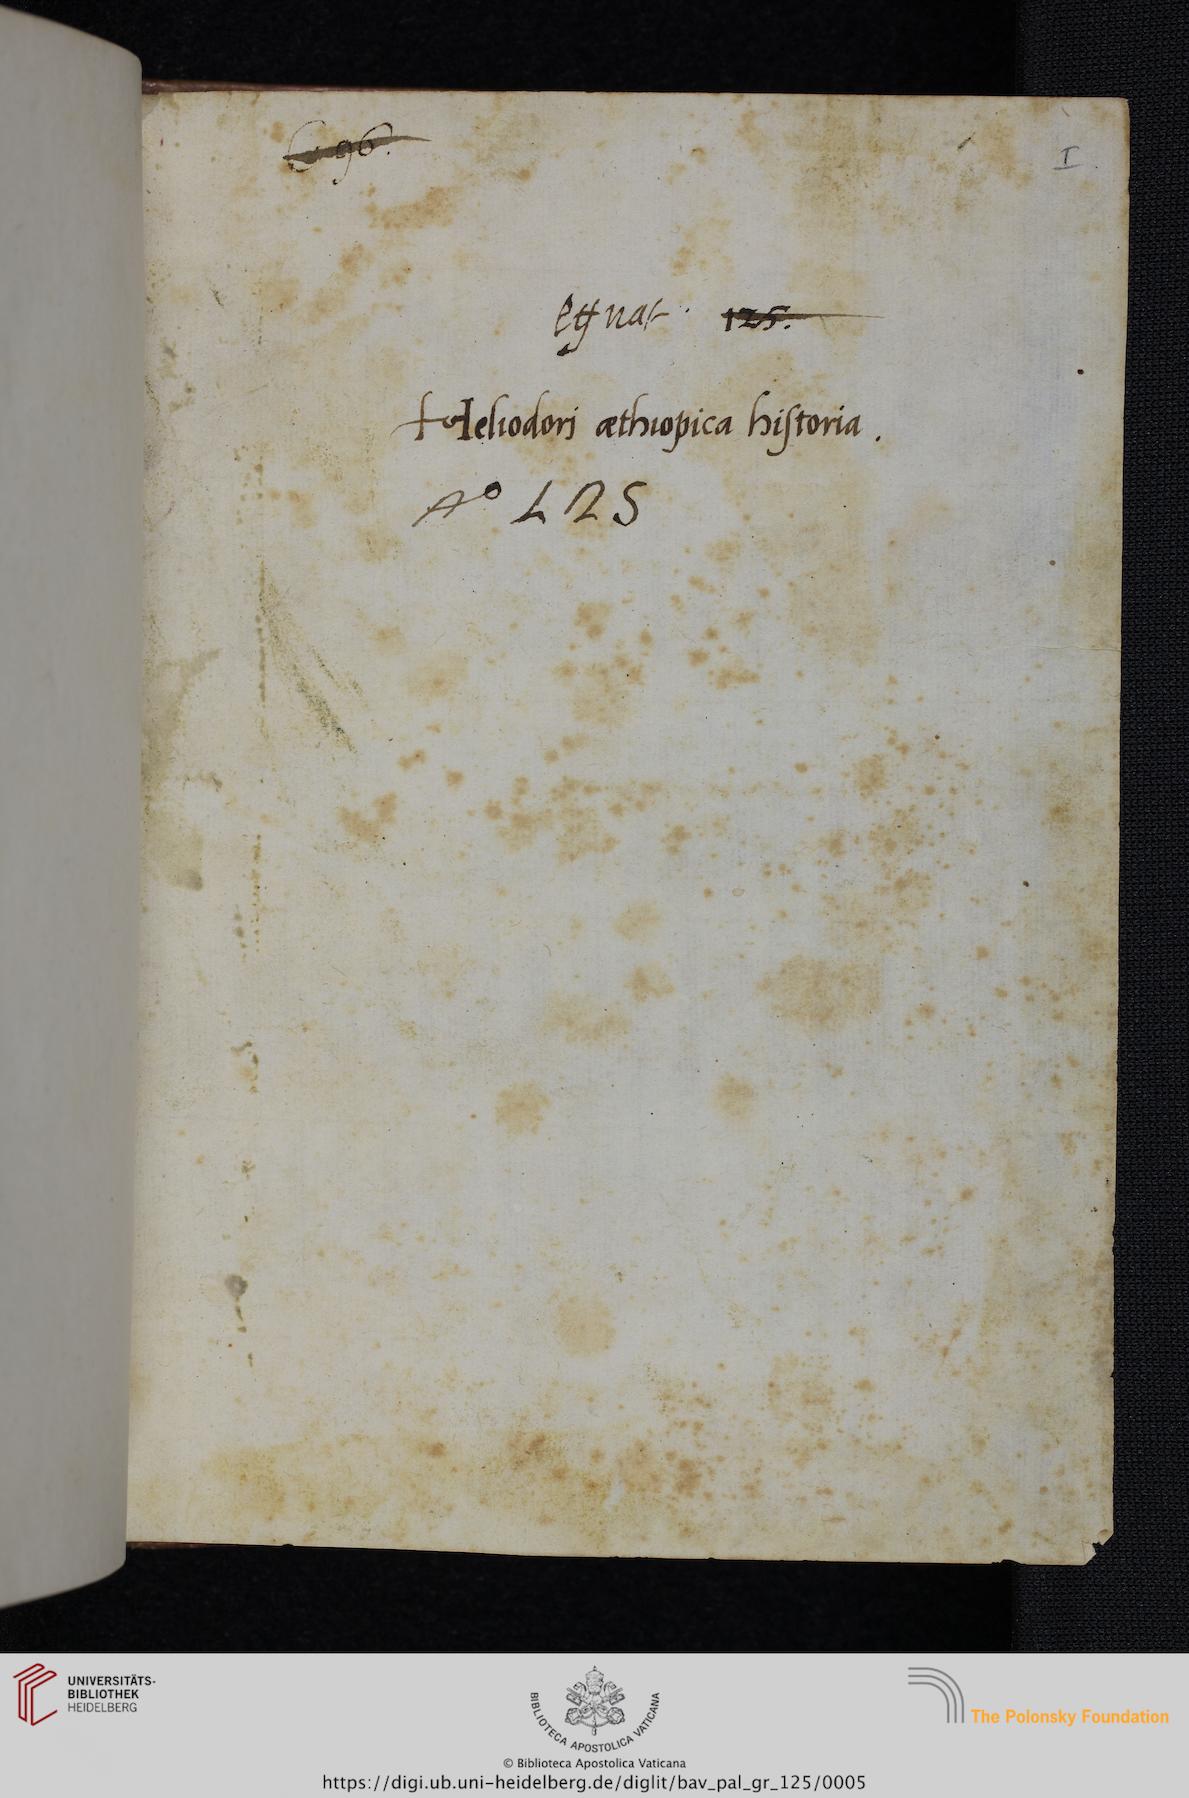 C 96.
I
125.
Heliodori æthiopica historia.
Aº 125
UNIVERSITÄTS-
BIBLIOTHEK
HEIDELBERG
BIBLIOTECA APOSTOLICA VATICANA
The Polonsky Foundation
© Biblioteca Apostolica Vaticana
https://digi.ub.uni-heidelberg.de/diglit/bav_pal_gr_125/0005